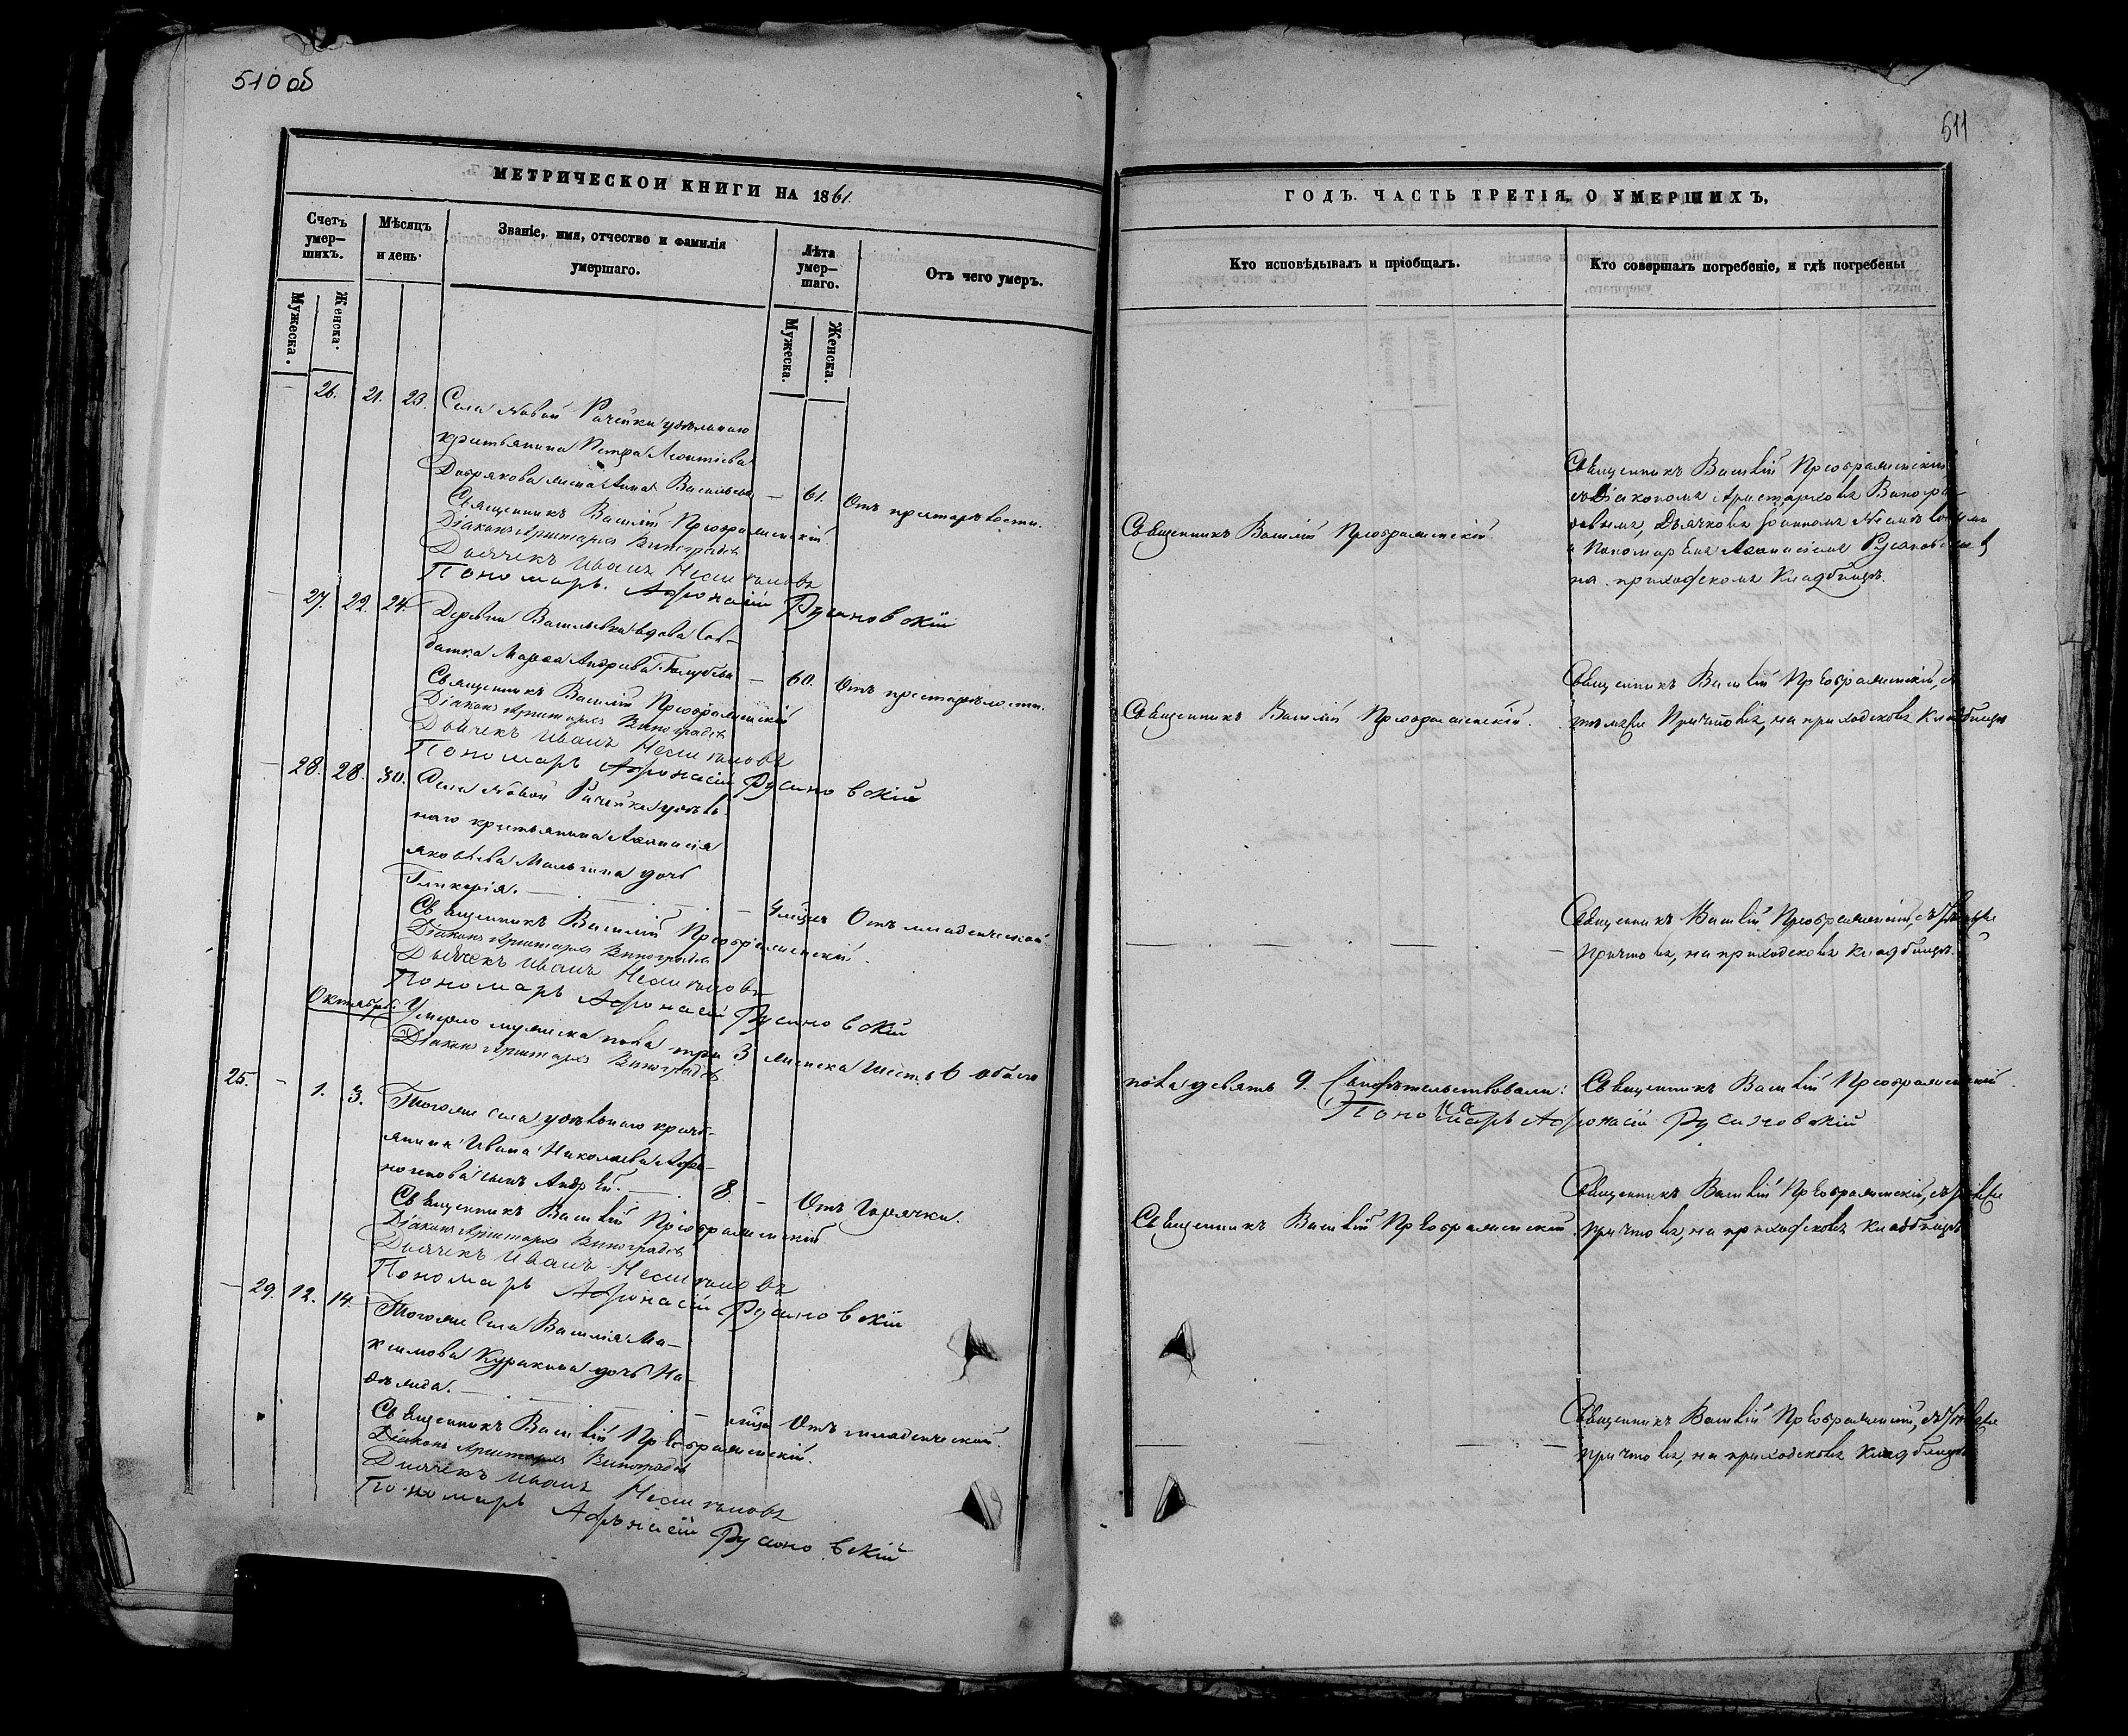 510 об
511
МЕТРИЧЕСКОЙ КНИГИ НА 1861.
ГОДЪ. ЧАСТЬ ТРЕТІЯ, О УМЕРШИХЪ,
Счетъ умер–шихъ.
Мѣсяцъ и день.
Званіе, имя, отчество и фамилія умершаго.
Лѣта умер–шаго.
Отъ чего умеръ.
Кто исповѣдывалъ и пріобщалъ.
Кто совершалъ погребеніе, и гдѣ погребены
Мужеска.
Женска.
Мужеска.
Женска.
— 26. 21. 23. Села Новой Рачейки удѣльнаго
крестьянина Петра Леонтіева
жена Анна Васильева — 61. Отъ престарѣлости.
Священникъ Василій Преображенскій.
Діаконъ Аристархъ Виноградовъ
Дьячекъ Иванъ
Пономарь Афонасій Русановскій
Священникъ Василій Преображенскій.
Священникъ Василій Преображенскій
съ Діакономъ Аристархомъ Виногра-
довымъ, Дьячкомъ Іоанномъ
и Пономаремъ Аѳанасіемъ
на приходскомъ Кладбищѣ.
— 27. 22. 24. Деревни Васильевки вдова Сол-
датка Марѳа Андреева Голубева — 60. Отъ престарѣлости.
Священникъ Василій Преображенскій
Діаконъ Аристархъ Виноградовъ
Дьячекъ Иванъ
Пономарь Афонасій Русановскій
Священникъ Василій Преображенскій.
Священникъ Василій Преображенскій, съ
тѣмже Причтомъ, на приходскомъ Кладбищѣ
— 28. 28. 30. Села Новой Рачейки удѣль-
наго крестьянина Аѳанасія
Яковлева Малыгина дочь
Гликерія. — 4 мѣсяц Отъ младенческой.
Священникъ Василій Преображенскій.
Діаконъ Аристархъ Виноградовъ
Дьячекъ Иванъ
Пономарь Афонасій Русановскій
Священникъ Василій Преображенскій, съ тѣмже
Причтомъ, на приходскомъ Кладбищѣ.
Умерло мужеска пола три 3 женска шесть 6 обоего
пола девять 9. Свидѣтельствовали: Священникъ Василій Преображенскій.
Діаконъ Аристархъ Виноградовъ
Пономарь Афонасій Русановскій
Октябрь.
25. — 1. 3. Тогоже Села удѣльнаго кресть-
янина Ивана Николаева Афи-
ногенова сынъ Андрей. — 8. — Отъ Горячки.
Священникъ Василій Преображенскій
Діаконъ Аристархъ Виноградовъ
Дьячекъ Иванъ
Пономарь Афонасій Русановскій
Священникъ Василій Преображенскій.
Священникъ Василій Преображенскій, съ тѣмже
причтомъ, на приходскомъ Кладбищѣ
— 29. 12. 14. Тогоже Села Василія Ма-
ксимова Куракина дочь На-
дежда. — мѣсяц Отъ младенческой.
Священникъ Василій Преображенскій.
Діаконъ Аристархъ Виноградовъ
Дьячекъ Иванъ
Пономарь Афонасій Русановскій
Священникъ Василій Преображенскій, съ тѣмже
причтомъ, на приходскомъ Кладбищѣ